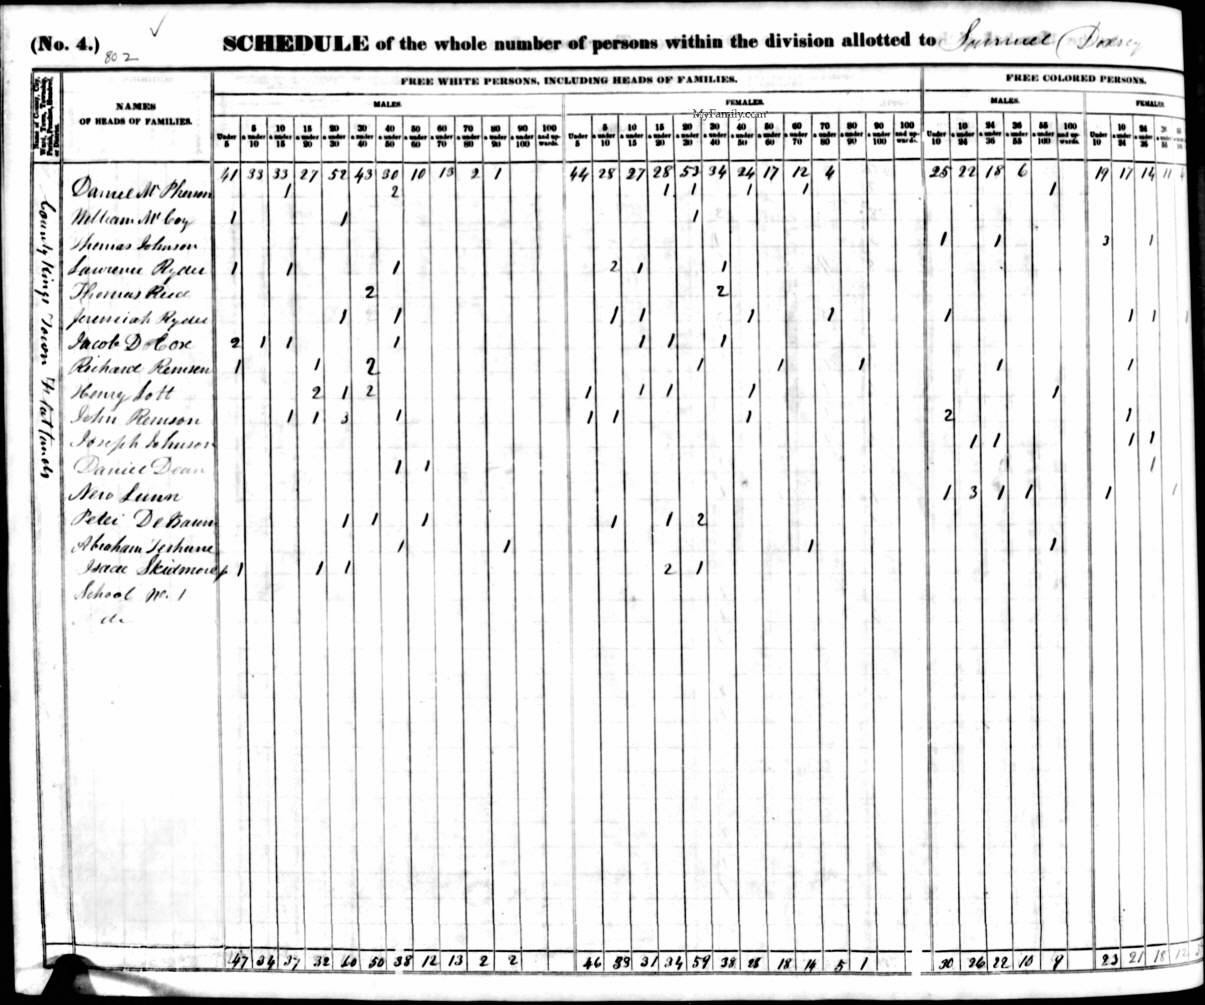 (No. 4.)
802
SCHEDULE of the whole number of persons within the division allotted to Samuel Doxsey
FREE WHITE PERSONS, INCLUDING HEADS OF FAMILIES.
FREE COLORED PERSONS.
NAMES OF HEADS OF FAMILIES.
MALES. FEMALES. MALES. FEMALES
MyFamily.com
Under 5 5 & under 10 10 & under 15 15 & under 20 20 & under 30 30 & under 40 40 & under 50 50 & under 60 60 & under 70 70 & under 80 80 & under 90 90 & under 100 100 and upwards. Under 5 5 & under 10 10 & under 15 15 & under 20 20 & under 30 30 & under 40 40 & under 50 50 & under 60 60 & under 70 70 & under 80 80 & under 90 90 & under 100 100 and upwards. Under 10 10 & under 24 24 & under 36 36 & under 55 55 & under 100 100 and upwards. Under 10 10 & under 24 24 & under 36
County Kings Town Flatlands
41 33 33 27 52 43 30 10 13 2 1 44 28 27 28 53 34 24 17 12 4 25 22 18 6 19 17 14 11
Daniel McPherson 1 2 1 1 1 1 1
William McCoy 1 1 1
Thomas Johnson 1 1 3 1
Lawrence Ryder 1 1 1 2 1 1
Thomas Reed 2 2
Jeremiah Ryder 1 1 1 1 1 1 1 1 1 1
Jacob D Cox 2 1 1 1 1 1 1
Richard Remsen 1 1 2 1 1 1 1 1
Henry Lott 2 1 2 1 1 1 1 1
John Remson 1 1 3 1 1 1 1 2 1
Joseph Johnson 1 1 1 1
Daniel Dean 1 1 1
Nero Lunn 1 3 1 1 1 1
Peter DeBaun 1 1 1 1 1 2
Abraham Terhune 1 1 1 1
Isaac Skidmore 1 1 1 2 1
School No. 1
47 34 37 32 60 50 38 12 13 2 2 46 33 31 34 59 38 28 18 14 5 1 30 26 22 10 9 23 21 18 12